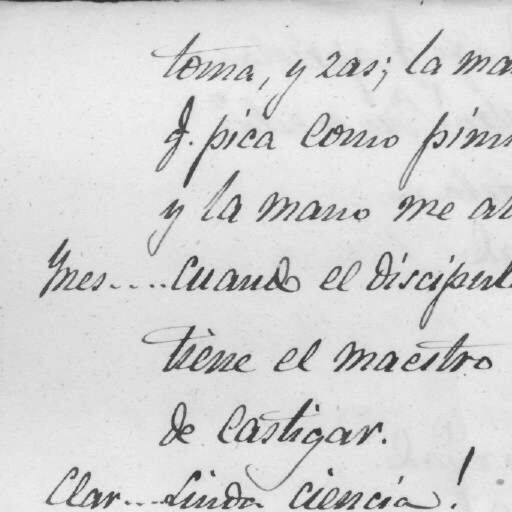 toma, y zas; la ma
q. pica como pim
y la mano me a
Ynes.... cuando el discipul
tiene el maestro
de castigar.
Clar... Linda ciencia!